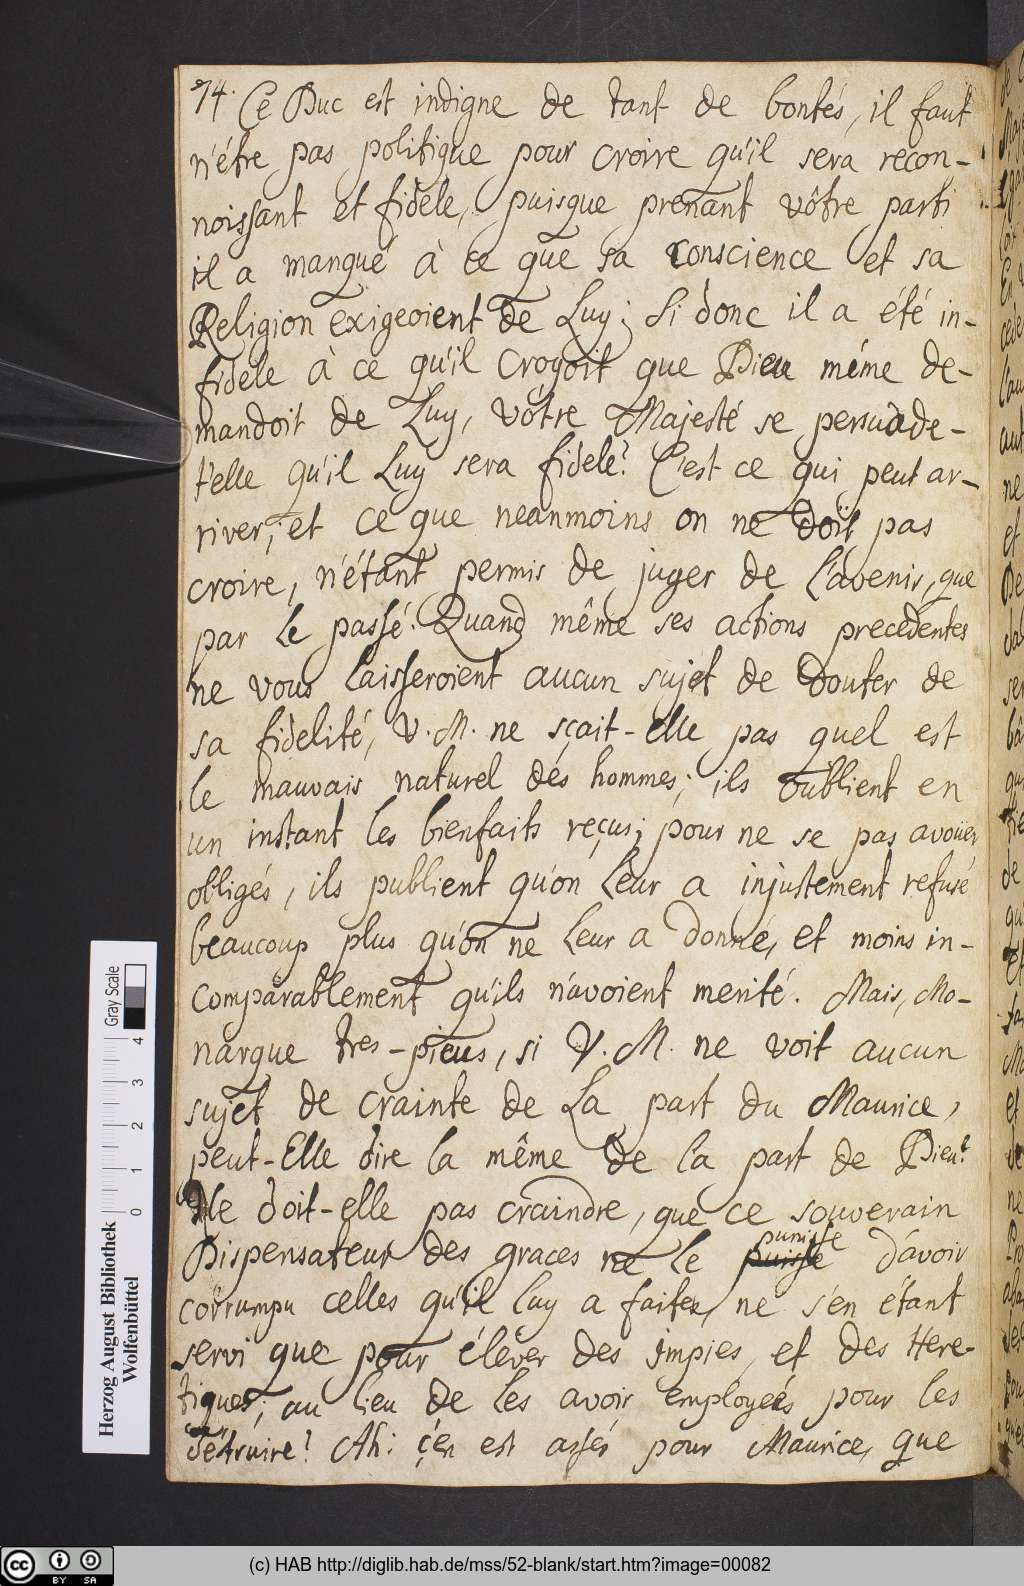 74. Ce Duc est indigne de tant de bontés, il faut
n'étre pas politique pour croire qu'il sera recon-
noissant et fidele, puisque prenant vôtre parti
il a manqué à ce que sa conscience et sa
Religion exigeoient de Luy; Si donc il a été in-
fidele à ce qu'il croyoit que Dieu méme de-
mandoit de Luy, vótre Majesté se persuade-
t'elle qu'il Luy sera fidele? C'est ce qui peut ar-
river, et ce que neanmoins on ne doit pas
croire, n'étant permis de juger de l'avenir, que
par le passé. Quand même ses actions precedentes
ne vous laisseroient aucun sujet de douter de
sa fidelité, V. M. ne sçait-elle pas quel est
le mauvais naturel des hommes; ils oublient en
un instant les bienfaits reçus; pour ne se pas avoüer
obligés, ils publient qu'on leur a injustement refusé
beaucoup plus qu'on ne leur a donné, et moins in-
comparablement qu'ils n'avoient merité. Mais, Mo-
narque tres-pieus, si V. M. ne voit aucun
sujet de crainte de La part du Maurice,
peut-Elle dire la même de la part de Dieu?
Ne doit-elle pas craindre, que ce souverain
Dispensateur des graces ne le puisse punisse d'avoir
corrumpu celles qu'il luy a faites, ne s'en étant
servi que pour élever des impies, et des Here-
tiques, au lieu de les avoir employeés pour les
détruire? Ah: ç'en est assés pour Maurice, que
Herzog August Bibliothek
Wolfenbüttel
0 1 2 3 4
Gray Scale
cc BY SA
(c) HAB http://diglib.hab.de/mss/52-blank/start.htm?image=00082